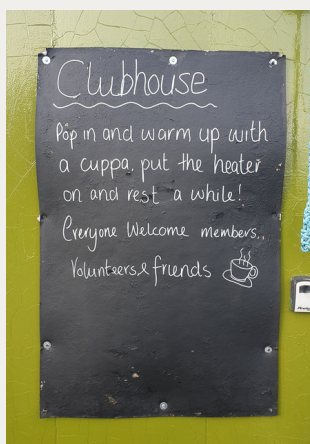 Clubhouse
Pop in and warm up with
a cuppa, put the heater
on and rest a while!
Everyone Welcome members..
Volunteers & friends